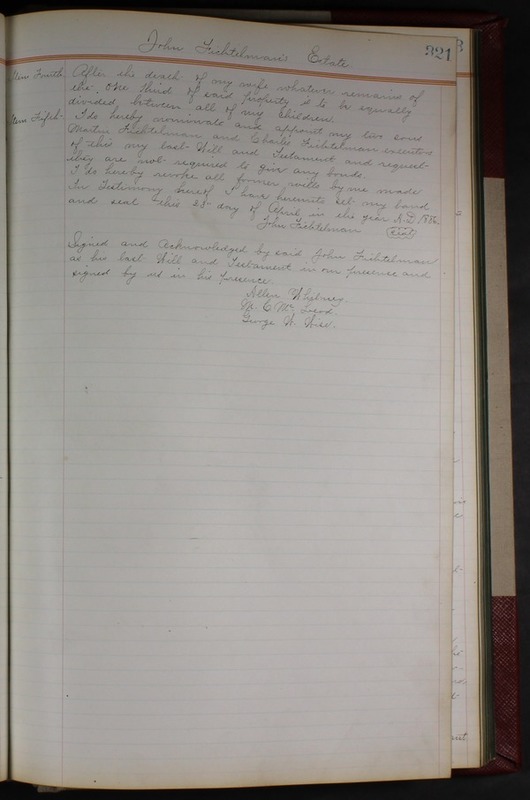 John Fichtelman's Estate
321
Item Fourth. After the death of my wife whatever remains of
the one third of said property is to be equally
divided between all of my children.
Item Fifth. I do hereby nominate and appoint my two sons
Martin Fichtelman and Charles Fichtelman executors
of this my last Will and Testament and request
they are not required to give any bonds.
I do hereby revoke all former wills by me made
In Testimony hereof I have hereunto set my hand
and seal this 25 day of April in the year A.D. 1886.
John Fichtelman seal
Signed and Acknowledged by said John Fichtelman
as his last Will and Testament in our presence and
signed by us in his presence.
Allen Whitney
M. C. Mc
George W. Wise.